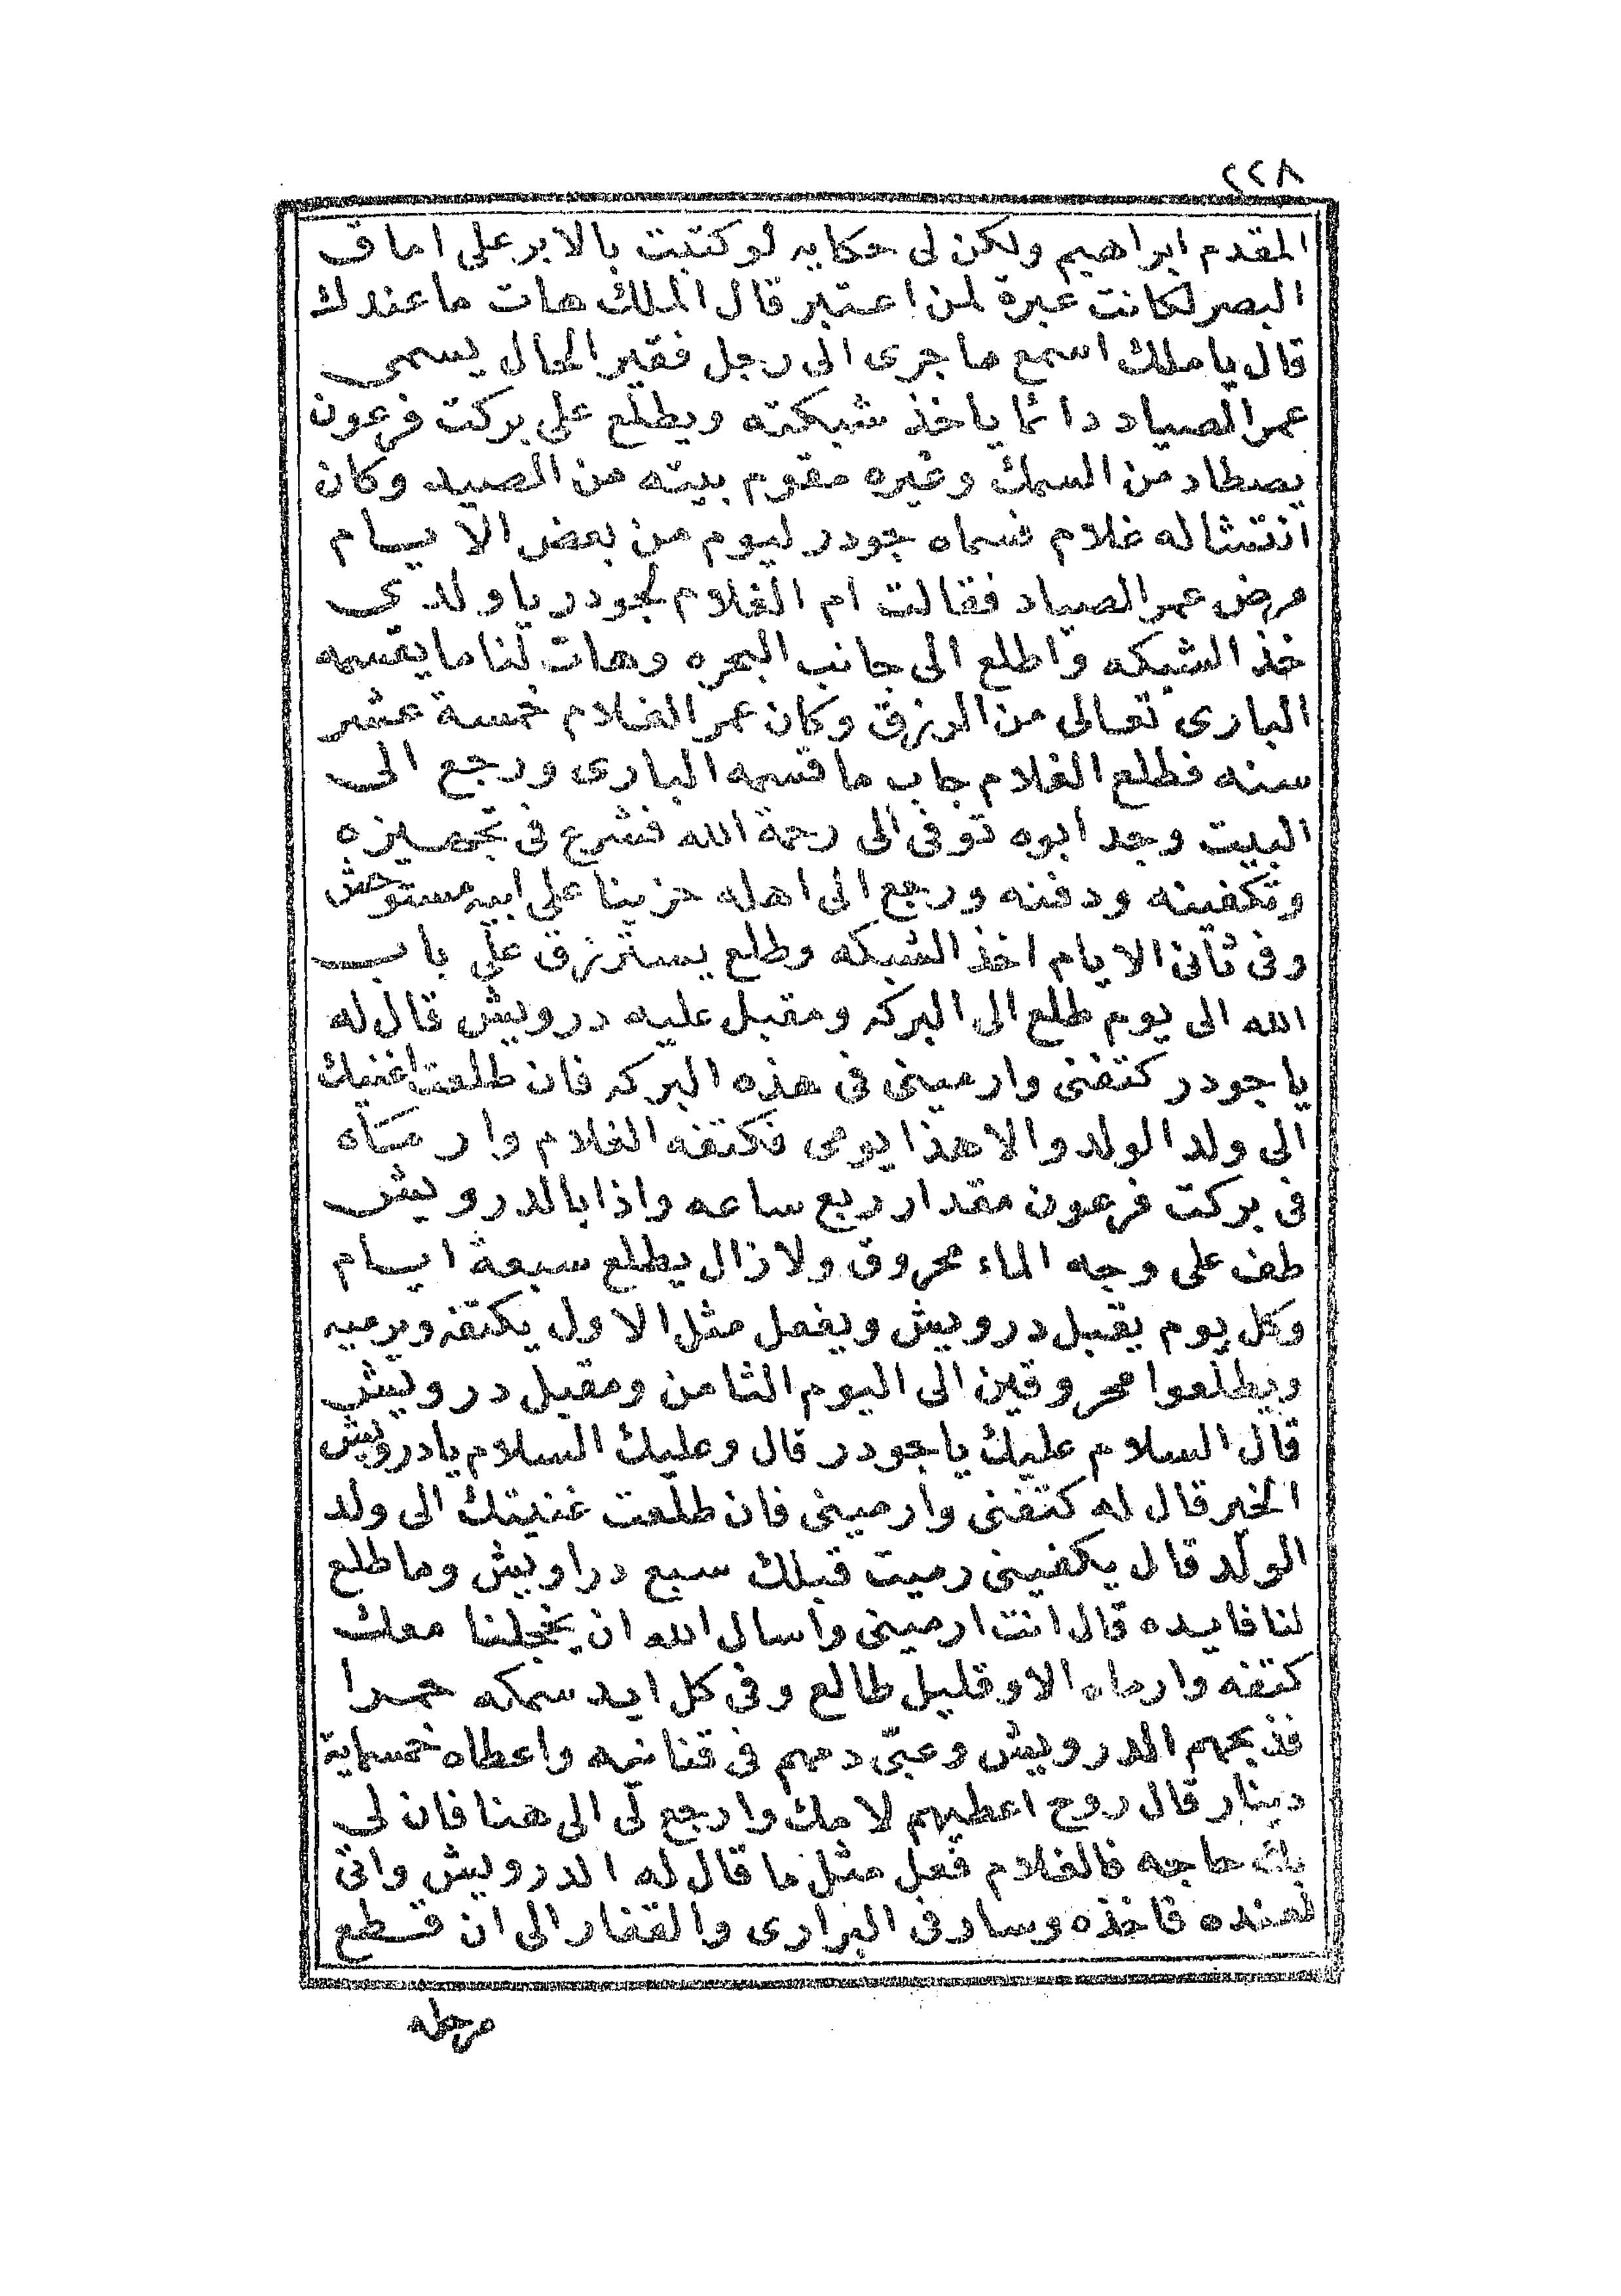 ٢٢٨
المقدم ابراهيم ولكن لى حكايه لو كتبت بالابر على اماق
البصر لكانت عبرة لمن اعتبر قال الملك هات ما عندك
قال يا ملك اسمع ما جرى الى رجل فقير الحال يسمى
عمر الصياد دائما ياخذ شبكته ويطلع على بركت فرعون
يصطاد من السمك وغيره مقوم بيته من الصيد وكان
انتشا له غلام فسماه جودر ليوم من بعض الايام
مرض عمر الصياد فقالت ام الغلام لجودر يا ولدي
خذ الشبكه واطلع الى جانب البحره وهات لنا ما يقسمه
البارى تعالى من الرزق وكان عمر الغلام خمسة عشر
سنه فطلع الغلام جاب ما قسمه البارى ورجع الى
البيت وجد ابوه توفى الى رحمة الله فشرع فى تجهيزه
وتكفينه ودفنه ورجع الى اهله حزينا على ابيه مستوحش
وفى ثانى الايام اخذ الشبكه وطلع يسترزق على باب
الله الى يوم طلع الى البركه ومقبل عليه درويش قال له
يا جودر كتفنى وارمينى فى هذه البركه فان طلعت اغنيك
الى ولد الولد والا هذا يومى فكتفه الغلام وارماه
فى بركت فرعون مقدار ربع ساعه واذا بالدرويش
طف على وجه الماء محروق ولا زال يطلع سبعة ايام
وكل يوم يقبل درويش ويفعل مثل الاول يكتفه ويرميه
ويطلعوا محروقين الى اليوم الثامن ومقبل درويش
قال السلام عليك يا جودر قال وعليك السلام يا درويش
الخير قال له كتفنى وارمينى فان طلعت غنيتك الى ولد
الولد قال يكفينى رميت قبلك سبع دراويش وما طلع
لنا فايده قال انت ارمينى واسال الله ان يخجلنا معك
كتفه وارماه الا وقليل طالع وفى كل ايد سمكه حمرا
فذبحهم الدرويش وعبّى دمهم فى قنانيه واعطاه خمسماية
دينار قال روح اعطيهم لامك وارجع لى الى هنا فان لى
بك حاجه فالغلام فعل مثل ما قال له الدرويش واتى
لعنده فاخذه وسار فى البرارى والقفار الى ان قطع
مرحله